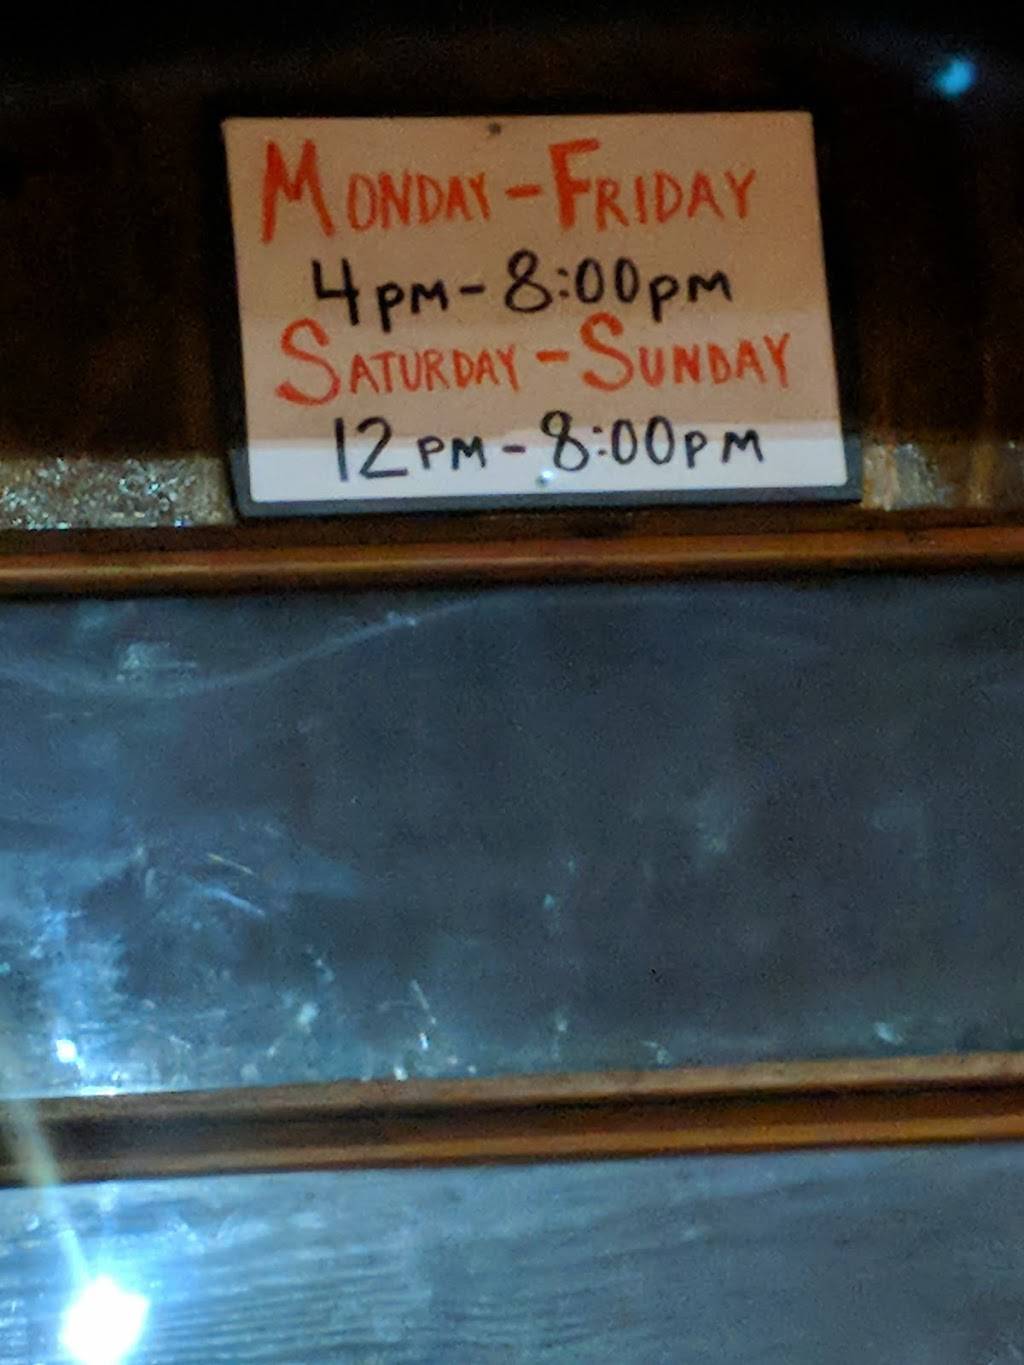 MONDAY - FRIDAY
4PM - 8:00PM
SATURDAY - SUNDAY
12PM - 8:00PM